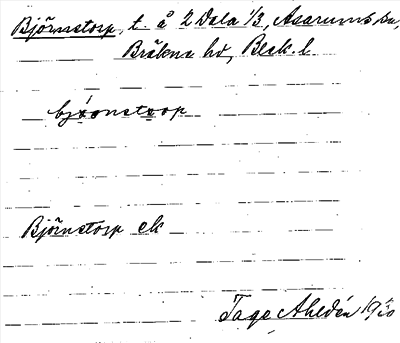 Björnstorp, t. å 2 Dala 1/3, Asarums sn,
Bräkne hd, Blek. l.
bjö́onstorp
Björnstorp ek
Tage Ahldén 19